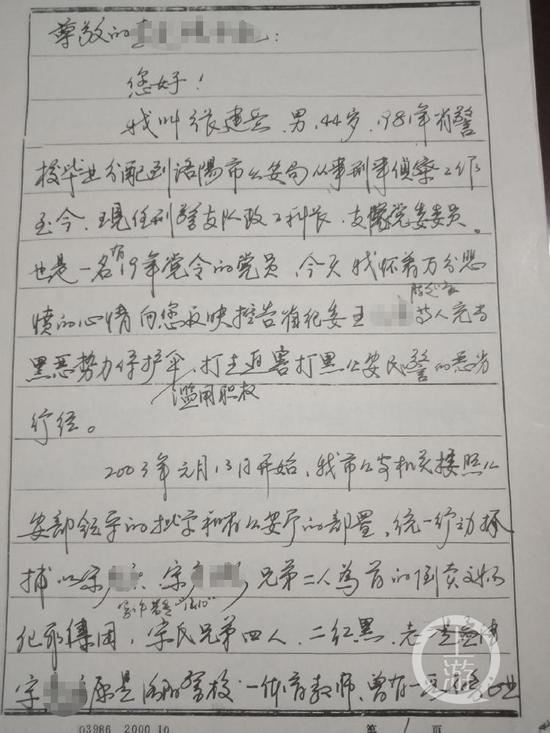 尊敬的
您好！
我叫张建岳，男，44岁，1981年省警
校毕业分配到洛阳市公安局从事刑事侦察工作
至今，现任刑警支队政工科长、支队党委委员。
也是一名有19年党令的党员，今天我怀着万分悲
愤的心情向您反映控告省纪委王 等人充当
黑恶势力保护伞，打击迫害打黑公安民警的恶劣
滥用职权
行径。
2003年元月13日开始，我市公安机关按照公
安部领导的批字和省公安厅的部署，统一行动抓
捕以宋 、宋 兄弟二人为首的倒卖文物
犯罪集团，宋氏兄弟四人，二红黑，老
宋 原是洛阳 校一体育教师，曾有一
03986 2000.10 第 1 页
上游